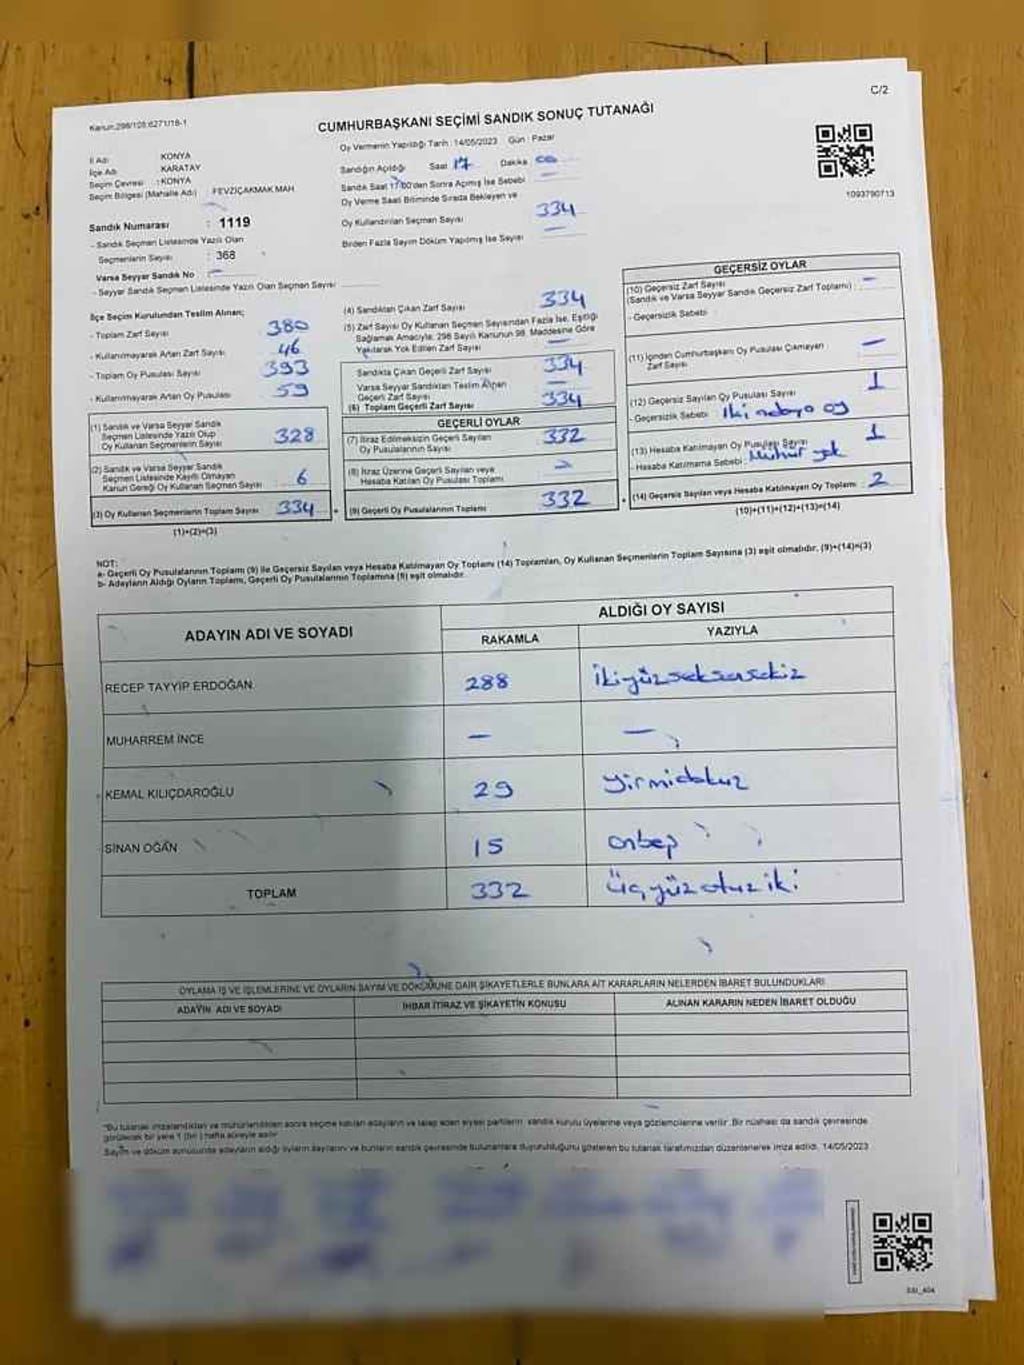 C/2
Kanun;298/105;6271/18-1
CUMHURBAŞKANI SEÇİMİ SANDIK SONUÇ TUTANAĞI
İl Adı : KONYA
İlçe Adı : KARATAY
Seçim Çevresi : KONYA
Seçim Bölgesi (Mahalle Adı) : FEVZİÇAKMAK MAH
Sandık Numarası : 1119
- Sandık Seçmen Listesinde Yazılı Olan
Seçmenlerin Sayısı : 368
Varsa Seyyar Sandık No : —
- Seyyar Sandık Seçmen Listesinde Yazılı Olan Seçmen Sayısı :
Oy Vermenin Yapıldığı Tarih : 14/05/2023 Gün : Pazar
Sandığın Açıldığı Saat 17 Dakika 00
Sandık Saat 17:00'den Sonra Açılmış İse Sebebi —
Oy Verme Saati Bitiminde Sırada Bekleyen ve
Oy Kullandırılan Seçmen Sayısı 334
Birden Fazla Sayım Döküm Yapılmış İse Sayısı —
1093790713
İlçe Seçim Kurulundan Teslim Alınan;
- Toplam Zarf Sayısı : 380
- Kullanılmayarak Artan Zarf Sayısı : 46
- Toplam Oy Pusulası Sayısı : 393
- Kullanılmayarak Artan Oy Pusulası : 59
(1) Sandık ve Varsa Seyyar Sandık
Seçmen Listesinde Yazılı Olup
Oy Kullanan Seçmenlerin Sayısı : 328
(2) Sandık ve Varsa Seyyar Sandık
Seçmen Listesinde Kayıtlı Olmayan
Kanun Gereği Oy Kullanan Seçmen Sayısı : 6
(3) Oy Kullanan Seçmenlerin Toplam Sayısı : 334
(1)+(2)=(3)
(4) Sandıktan Çıkan Zarf Sayısı 334
(5) Zarf Sayısı Oy Kullanan Seçmen Sayısından Fazla İse, Eşitliği
Sağlamak Amacıyle; 298 Sayılı Kanunun 98. Maddesine Göre
Yakılarak Yok Edilen Zarf Sayısı —
Sandıkta Çıkan Geçerli Zarf Sayısı 334
Varsa Seyyar Sandıktan Teslim Alınan
Geçerli Zarf Sayısı —
(6) Toplam Geçerli Zarf Sayısı 334
GEÇERLİ OYLAR
(7) İtiraz Edilmeksizin Geçerli Sayılan
Oy Pusulalarının Sayısı : 332
(8) İtiraz Üzerine Geçerli Sayılan veya
Hesaba Katılan Oy Pusulası Toplamı :
(9) Geçerli Oy Pusulalarının Toplamı : 332
GEÇERSİZ OYLAR
(10) Geçersiz Zarf Sayısı
(Sandık ve Varsa Seyyar Sandık Geçersiz Zarf Toplamı) : —
- Geçersizlik Sebebi :
(11) İçinden Cumhurbaşkanı Oy Pusulası Çıkmayan
Zarf Sayısı : —
(12) Geçersiz Sayılan Oy Pusulası Sayısı : 1
- Geçersizlik Sebebi : iki adaya oy
(13) Hesaba Katılmayan Oy Pusulası Sayısı : 1
- Hesaba Katılmama Sebebi : Mühür yok
(14) Geçersiz Sayılan veya Hesaba Katılmayan Oy Toplamı : 2
(10)+(11)+(12)+(13)=(14)
NOT:
a- Geçerli Oy Pusulalarının Toplamı (9) ile Geçersiz Sayılan veya Hesaba Katılmayan Oy Toplamı (14) Toplamları, Oy Kullanan Seçmenlerin Toplam Sayısına (3) eşit olmalıdır. (9)+(14)=(3)
b- Adayların Aldığı Oyların Toplamı, Geçerli Oy Pusulalarının Toplamına (9) eşit olmalıdır.
ADAYIN ADI VE SOYADI ALDIĞI OY SAYISI
RAKAMLA YAZIYLA
RECEP TAYYİP ERDOĞAN 288 ikiyüzseksensekiz
MUHARREM İNCE — —
KEMAL KILIÇDAROĞLU 29 yirmidokuz
SİNAN OĞAN 15 onbeş
TOPLAM 332 Üçyüzotuziki
OYLAMA İŞ VE İŞLEMLERİNE VE OYLARIN SAYIM VE DÖKÜMÜNE DAİR ŞİKAYETLERLE BUNLARA AİT KARARLARIN NELERDEN İBARET BULUNDUKLARI
ADAYIN ADI VE SOYADI İHBAR İTİRAZ VE ŞİKAYETİN KONUSU ALINAN KARARIN NEDEN İBARET OLDUĞU
*Bu tutanak imzalandıktan ve mühürlendikten sonra seçime katılan adayların ve talep eden siyasi partilerin sandık kurulu üyelerine veya gözlemcilerine verilir. Bir nüshası da sandık çevresinde
görülecek bir yere 1 (bir) hafta süreyle asılır
Sayım ve döküm sonucunda adayların aldığı oyların sayılarını ve bunların sandık çevresinde bulunanlara duyurulduğunu gösteren bu tutanak tarafımızdan düzenlenerek imza edildi. 14/05/2023